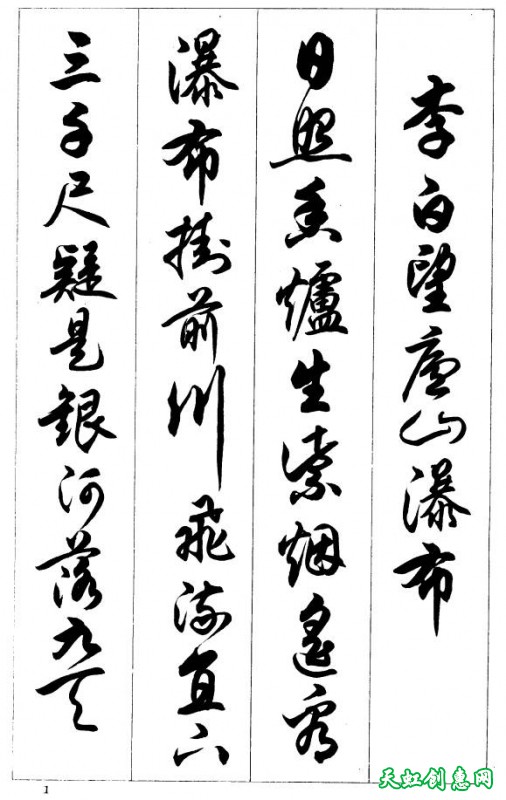 李白望廬山瀑布
日照香爐生紫烟遙看
瀑布掛前川飛流直下
三千尺疑是銀河落九天
1
天虹创惠网